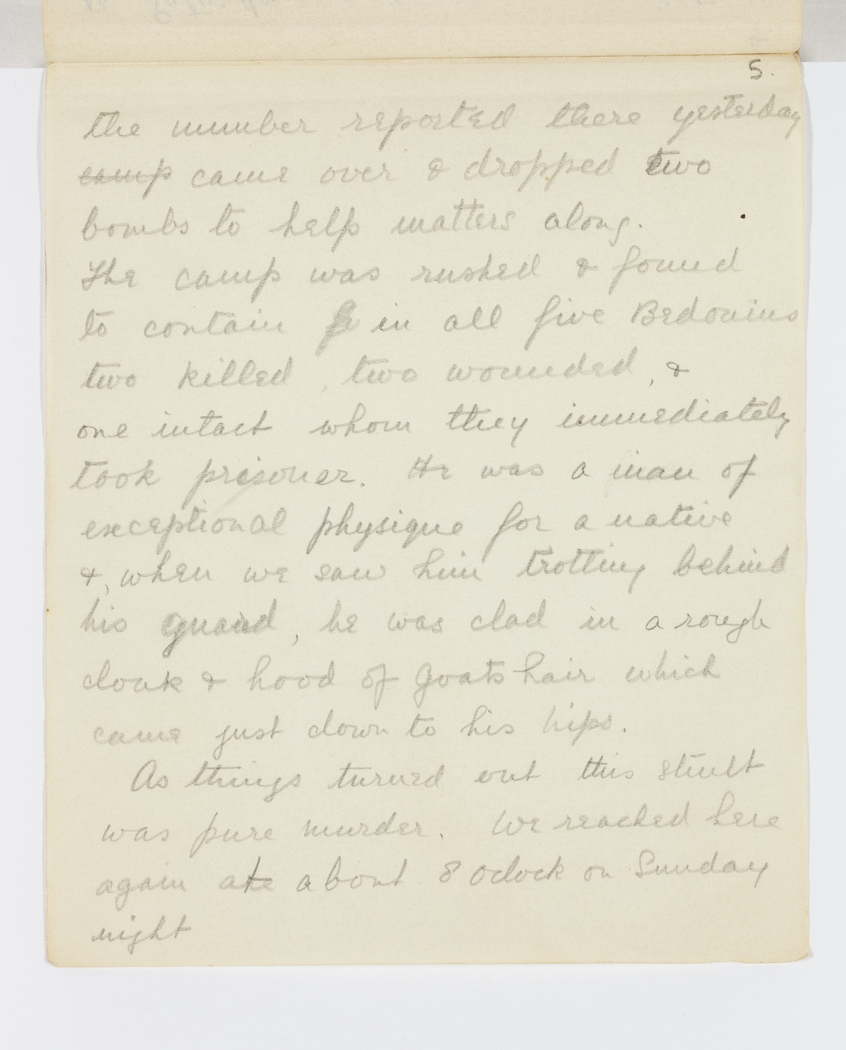 5.
the number reported there yesterday
camp came over & dropped two
bombs to help matters along.
The camp was rushed & found
to contain in all five Bedouins
two killed, two wounded, &
one intact whom they immediately
took prisoner. He was a man of
exceptional physique for a native
&, when we saw him trotting behind
his guard, he was clad in a rough
cloak & hood of goats hair which
came just down to his hips.
As things turned out this stult
was pure murder. We reached here
again ate about 8 oclock on Sunday
night